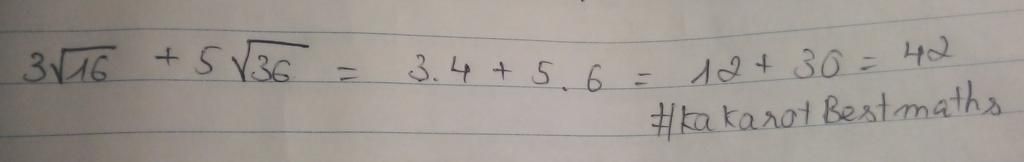 3√16 + 5√36 = 3.4 + 5.6 = 12 + 30 = 42
#KakarotBestmaths